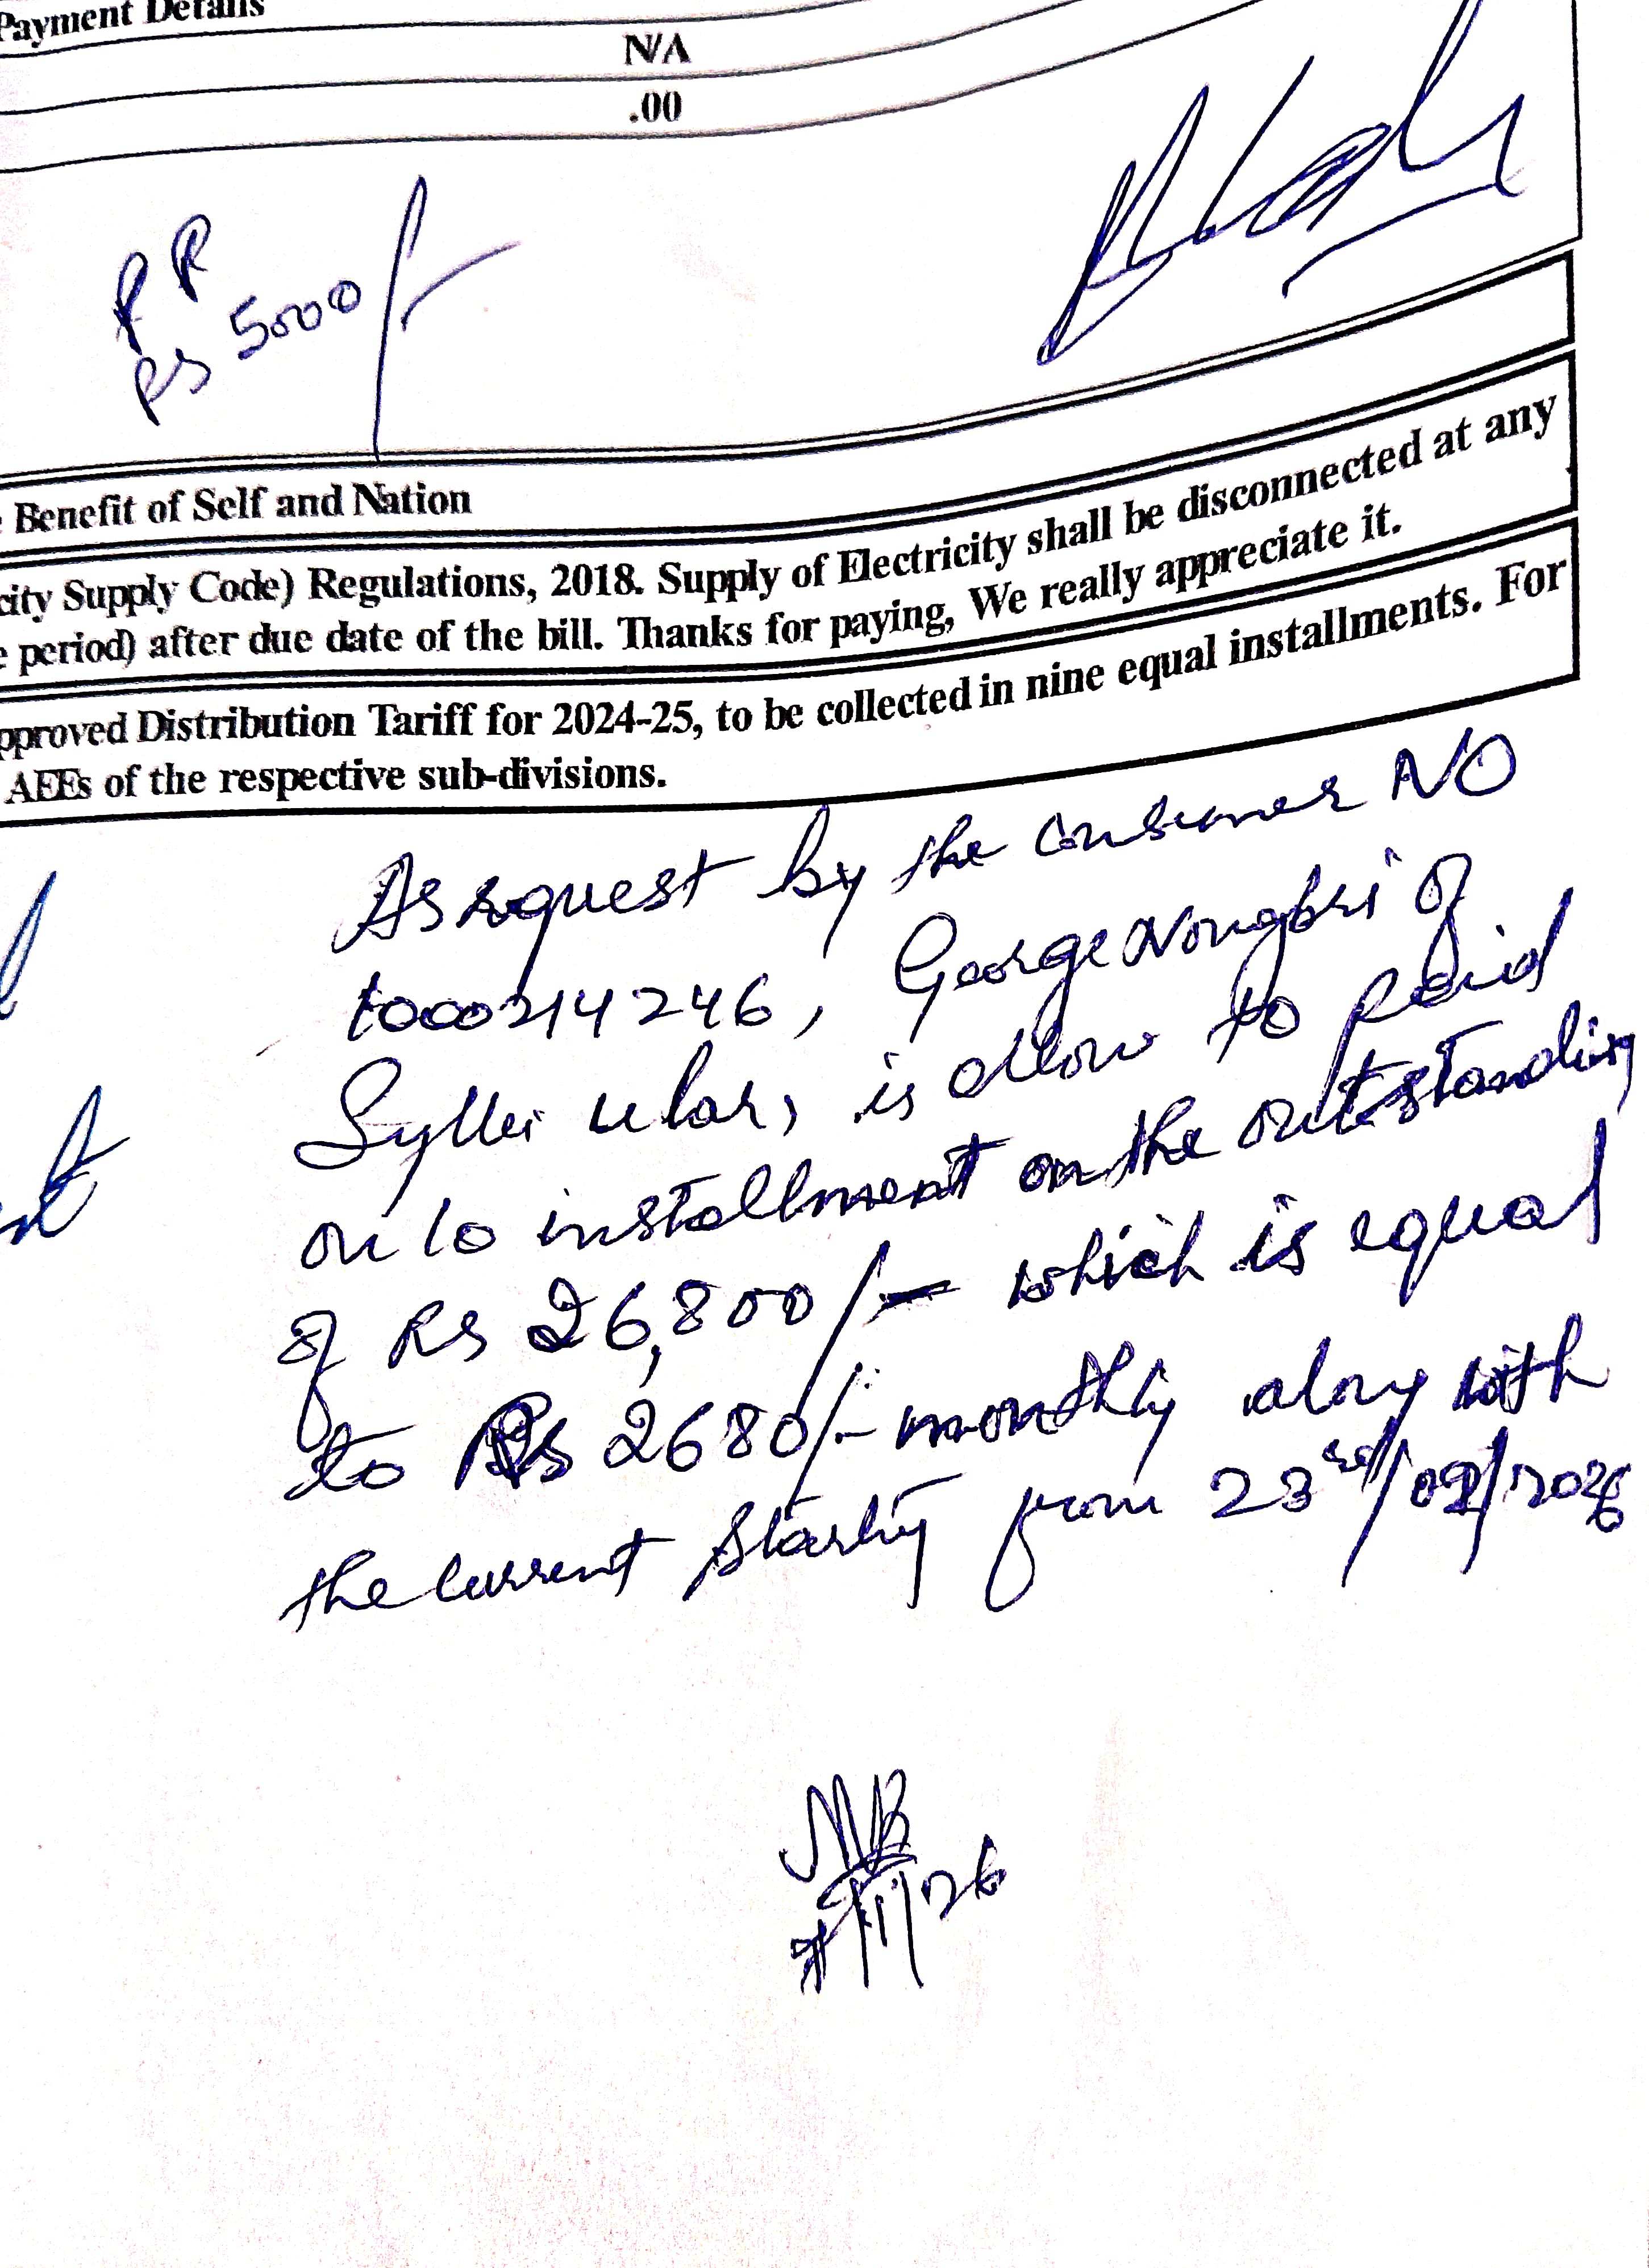 Payment Details
N/A
.00
PP
Rs 5000/-
Benefit of Self and Nation
city Supply Code) Regulations, 2018. Supply of Electricity shall be disconnected at any
period) after due date of the bill. Thanks for paying, We really appreciate it.
pproved Distribution Tariff for 2024-25, to be collected in nine equal installments. For
AEEs of the respective sub-divisions.
As request by the consumer NO
1000214246, George Nongbri of
Syllei ular, is allow to paid
on 10 installment on the outstanding
of Rs 26,800/- which is equal
to Rs 2680/- monthly along with
the current starting from 23rd/02/2026